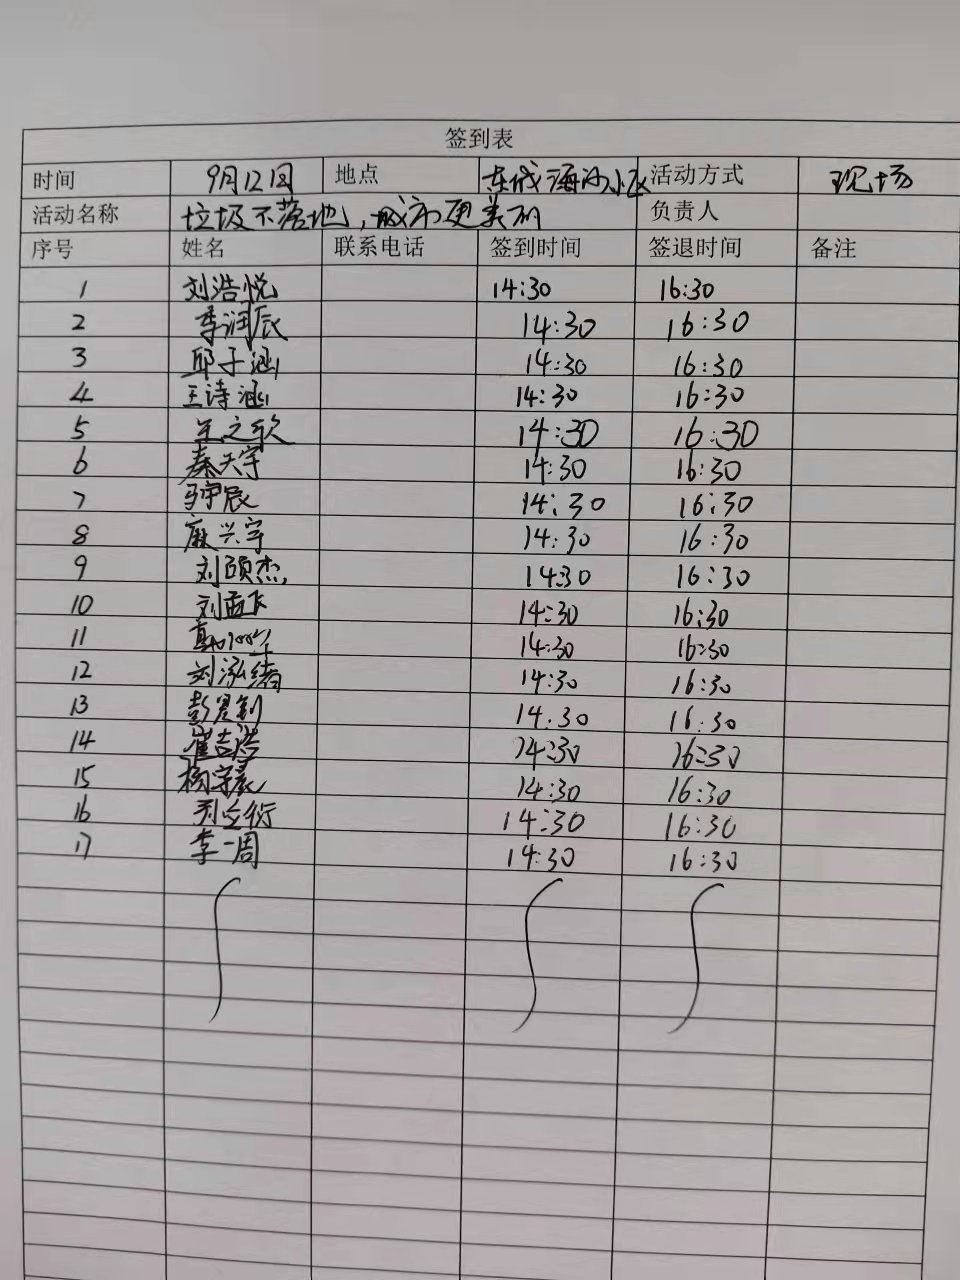 签到表
时间 9月12日 地点 东城海沙小区 活动方式 现场
活动名称 垃圾不落地,城市更美丽 负责人
序号 姓名 联系电话 签到时间 签退时间 备注
1 刘浩悦 14:30 16:30
2 李润辰 14:30 16:30
3 邱子涵 14:30 16:30
4 王诗涵 14:30 16:30
5 14:30 16:30
6 秦天宇 14:30 16:30
7 14:30 16:30
8 麻兴宇 14:30 16:30
9 刘硕杰 14:30 16:30
10 14:30 16:30
11 14:30 16:30
12 刘泓绪 14:30 16:30
13 14:30 16:30
14 14:30 16:30
15 杨宇晨 14:30 16:30
16 14:30 16:30
17 李一周 14:30 16:30